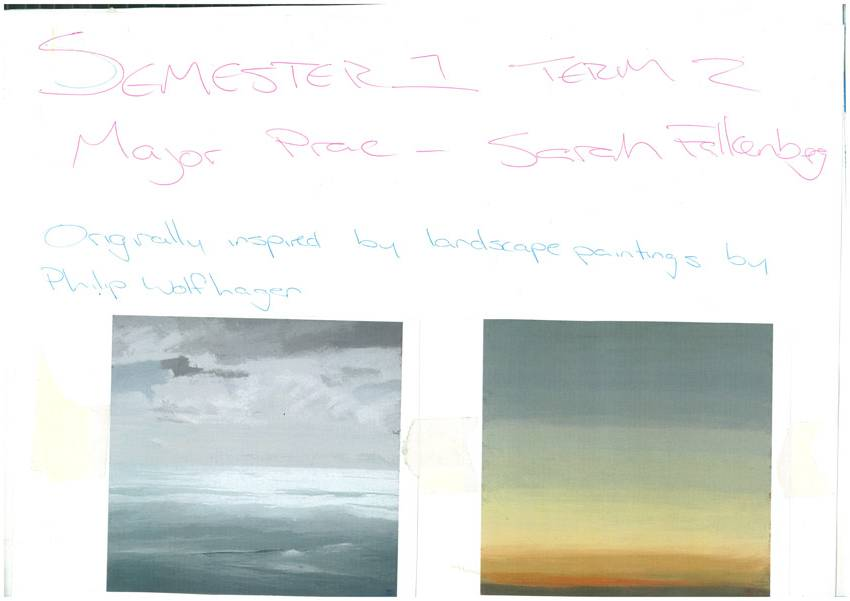 SEMESTER 1 TERM 2
Major Prac - Sarah Falkenberg
Originally inspired by landscape paintings by
Philip Wolfhagen